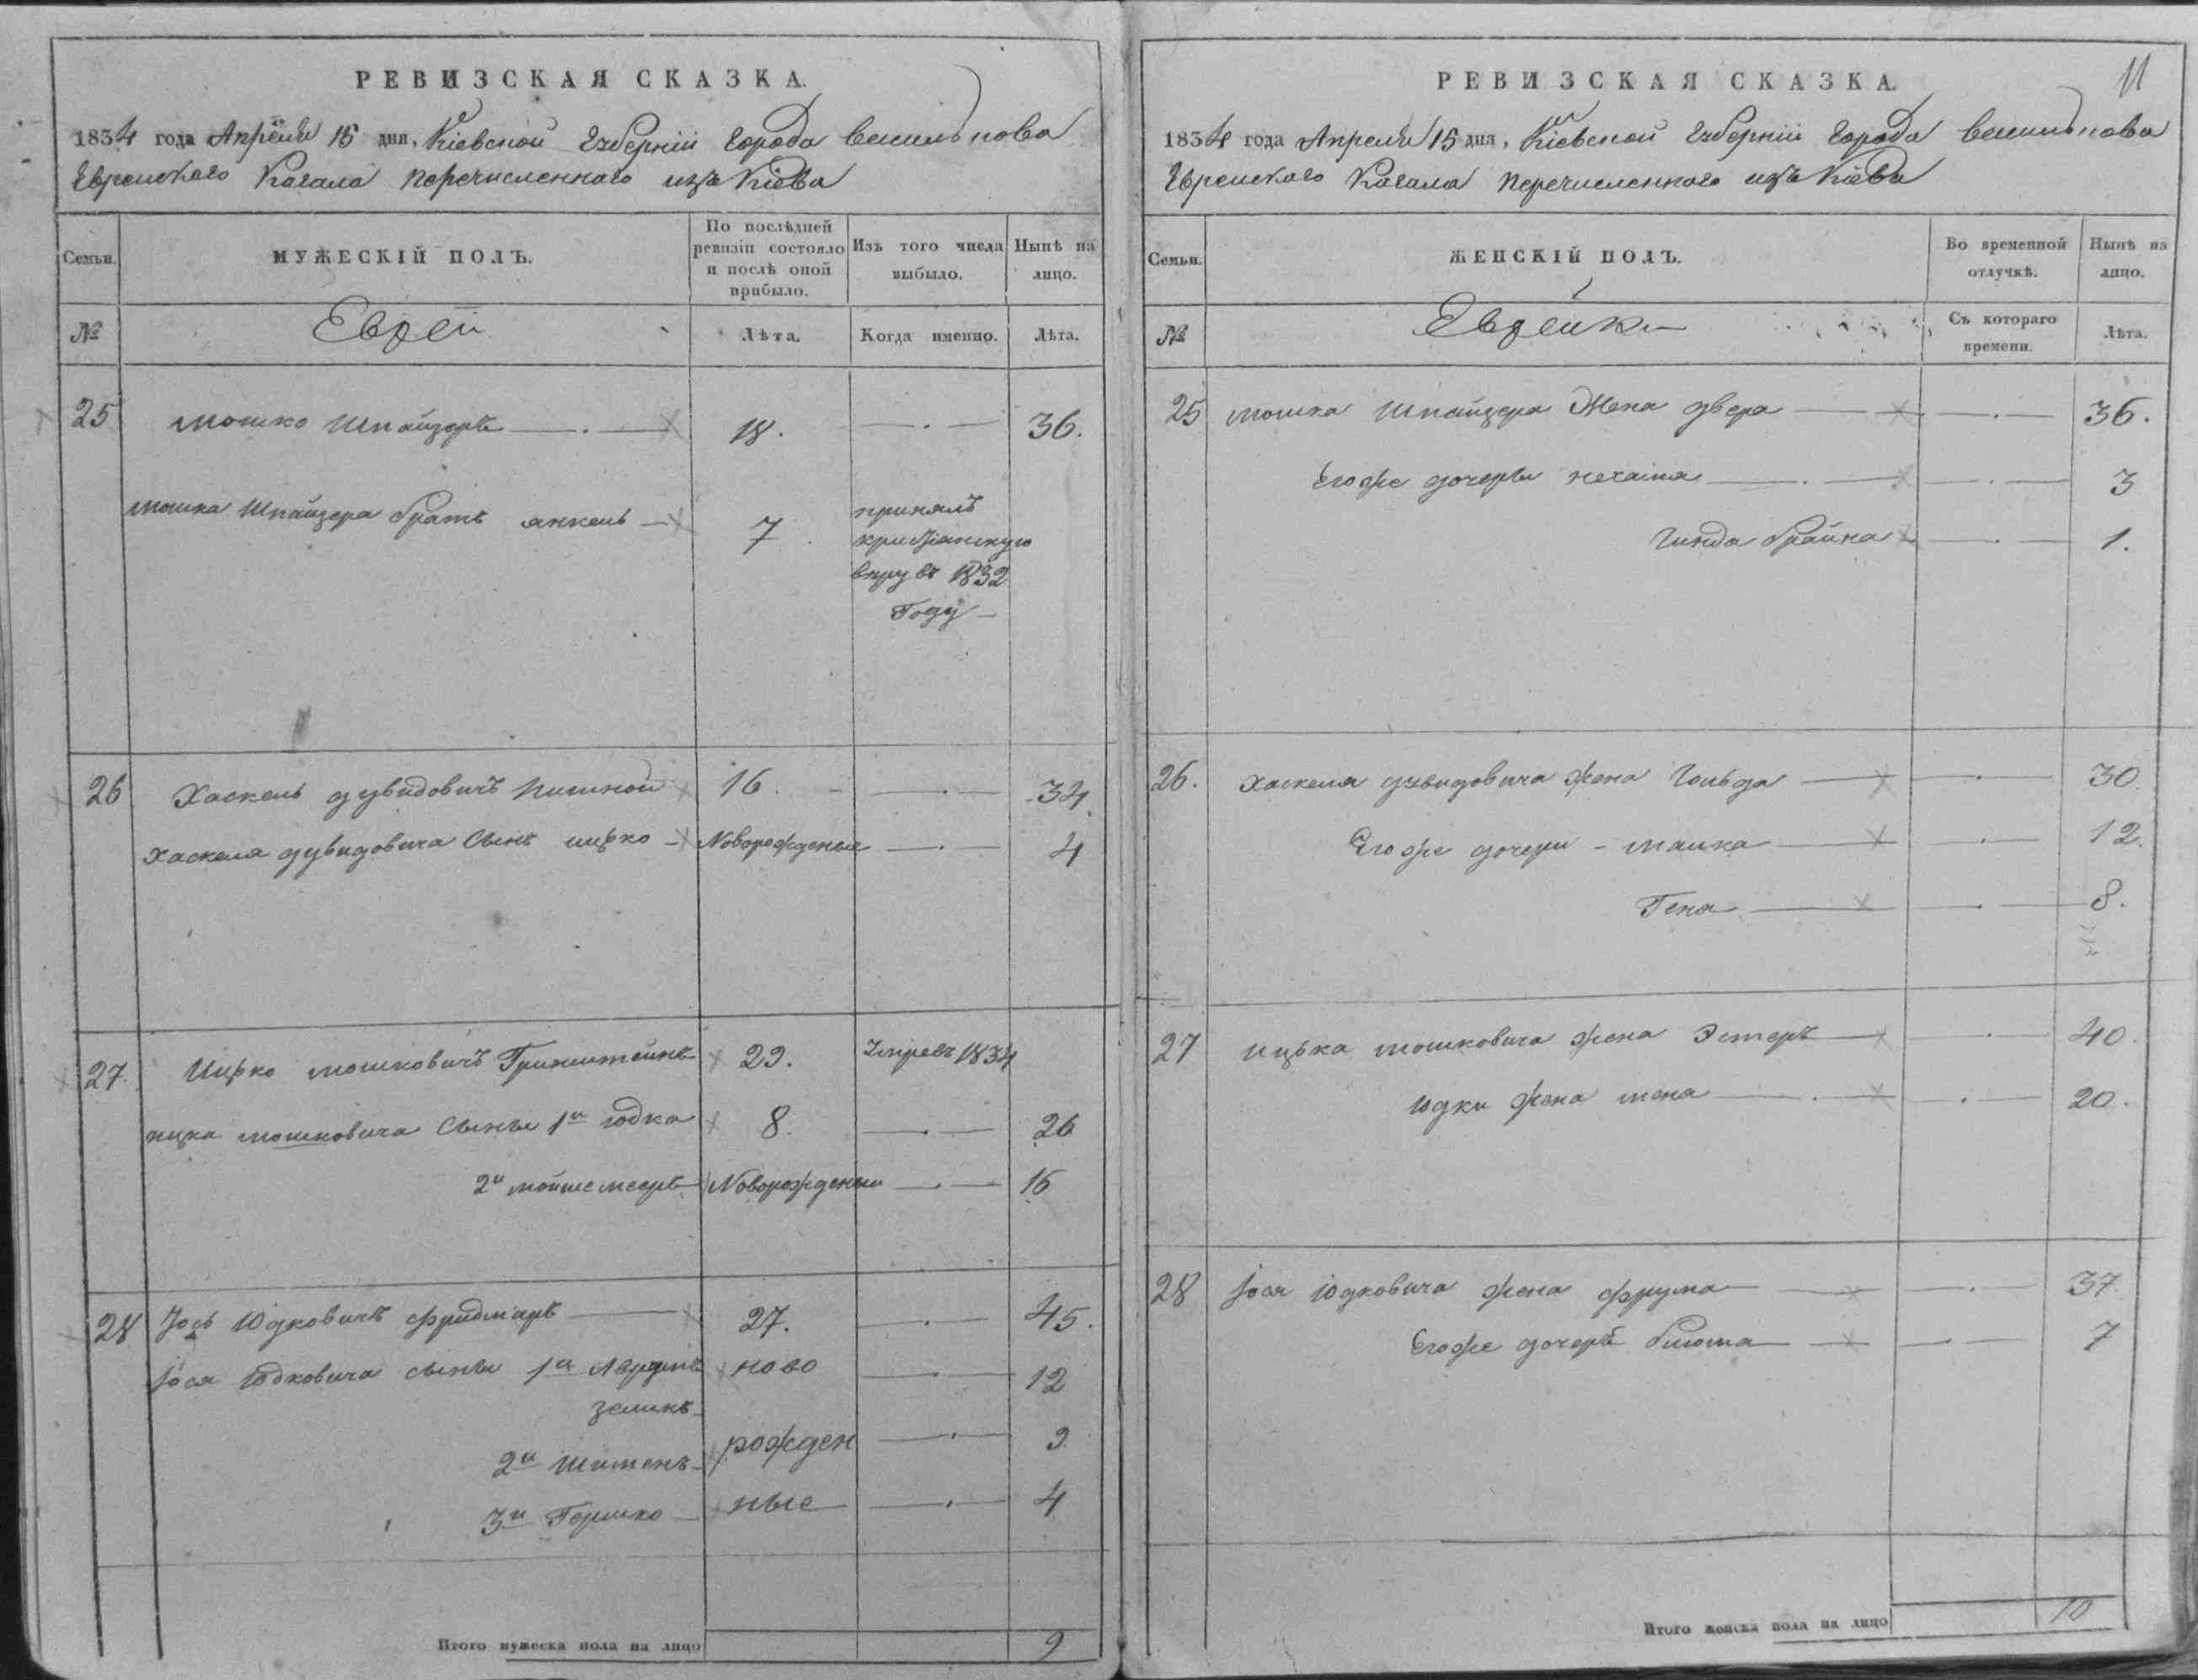 РЕВИЗСКАЯ СКАЗКА.
1834 года Апреля 15 дня, Кіевской Губерніи Города Василькова
Еврейскаго Кагала перечисленнаго изъ Кіева
Семьи.
МУЖЕСКІЙ ПОЛЪ.
По послѣдней ревизіи состояло и послѣ оной прибыло.
Изъ того числа выбыло.
Нынѣ на лицо.
№
Евреи
Лѣта.
Когда именно.
Лѣта.
25 Мошко Шпайзеръ 18. 36.
Мошка Шпайзера братъ Янкель 7
принялъ
христіанскую
веру въ 1832
Году
26 Хаскель Дувидовичъ 16. 34.
Хаскеля Дувидовича Сынъ Ицко Новорожденые 4
27. Ицко Мошковичъ Гринштейнъ 29. Умре въ 1834
Ицка Мошковича Сынъи 1й Юдка 8. 26
2й Мойше Мееръ Новорожденыи 16
28 Іось Юдковичъ Фридмаръ 27. 45.
Іося Юдковича сыны 1й ново 12
Зеликъ
2й Шименъ рожден 9
3й Гершко ные 4
Итого мужеска пола на лицо 9
11
РЕВИЗСКАЯ СКАЗКА.
1834 года Апреля 15 дня, Кіевской Губерніи Города Василькова
Еврейскаго Кагала перечисленнаго изъ Кіева
Семьи.
ЖЕНСКІЙ ПОЛЪ.
Во временной отлучкѣ.
Нынѣ на лицо.
№
Еврейки
Съ котораго времени.
Лѣта.
25 Мошка Шпайзера Жена Двера 36.
Егоже дочери Нехама 3
Гинда Брайна 1.
26. Хаскеля Дувидовича жена Гольда 30
Егоже дочери - Малка 12.
Геня 8.
27 Ицька Мошковича жена Эстеръ 40.
Юдки жена 20.
28 Іося Юдковича жена Фрума 37.
Егоже дочеръ Блюма 7
Итого женска пола на лицо 10